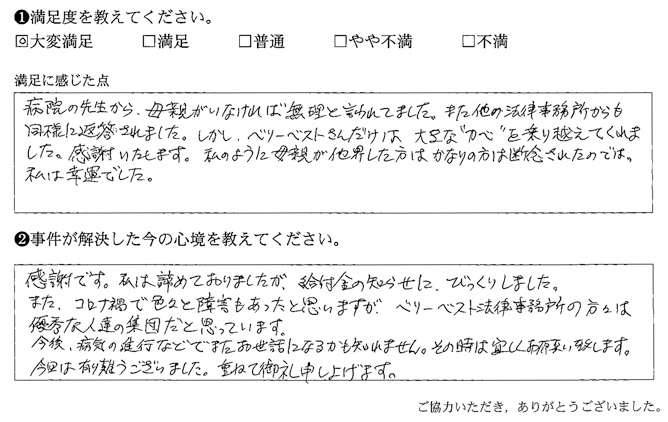 ❶満足度を教えてください。
☑大変満足 □満足 □普通 □やや不満 □不満
満足に感じた点
病院の先生から、母親がいなければ無理と言われてました。また他の法律事務所からも
同様に返答されました。しかし、ベリーベストさんだけは、大きな"カベ"を乗り越えてくれま
した。感謝いたします。私のように母親が他界した方はかなりの方は断念されたのでは。
私は幸運でした。
❷事件が解決した今の心境を教えてください。
感謝です。私は諦めておりましたが、給付金の知らせに、びっくりしました。
また、コロナ禍で色々と障害もあったと思いますが、ベリーベスト法律事務所の方々は
優秀な人達の集団だと思っています。
今後、病気の進行などでまたお世話になるかも知れません。その時は宜しくお願い致します。
今回は有難うございました。重ねて御礼申し上げます。
ご協力いただき，ありがとうございました。